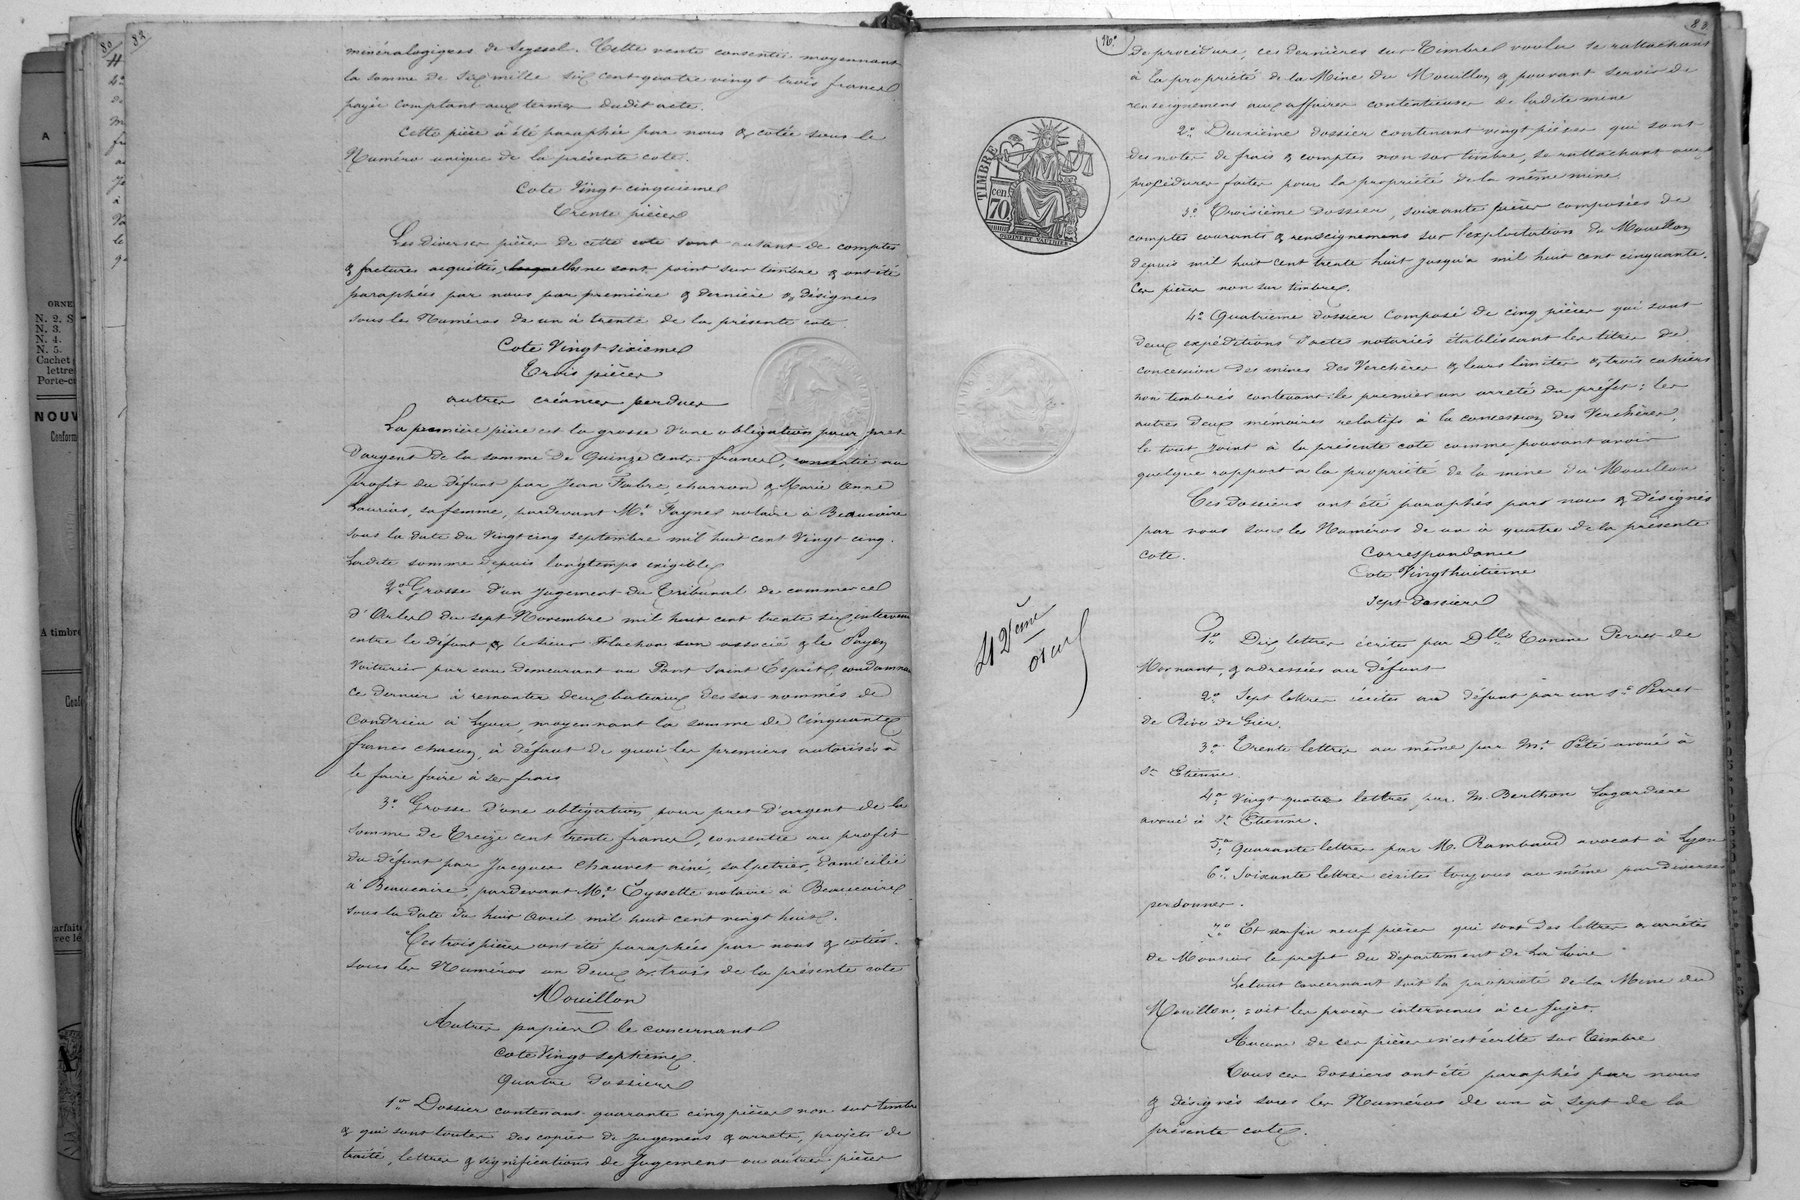 82
minéralogiques de Seyssel. Cette vente consentie moyennant
la somme de six mille six cent quatre vingt trois francs
payée comptant aux termes dudit acte.
Cette pièce a été paraphée par nous & cotée sous le
Numéro unique de la présente cote.
Cote Vingt cinquième
Trente pièces
Les diverses pièces de cette cote sont autant de comptes
& factures acquittés, lesquelles ne sont point sur timbre & ont été
paraphées par nous par première & dernière & désignées
sous les Numéros de un à trente de la présente cote
Cote Vingt-sixième
Trois pièces
autres créances perdues
La première pièce est la grosse d'une obligation pour pret
d'argent de la somme de Quinze Cents francs, consentie au
profit du défunt par Jean Fabre, charron & Marie Anne
Laurias, sa femme, pardevant Me. Faynes notaire à Beaucaire
sous la date du Vingt cinq septembre mil huit cent Vingt cinq.
Ladite somme depuis longtemps exigible
2o. Grosse d'un Jugement du Tribunal de commerce
d'Arles du sept Novembre mil huit cent trente six, intervenu
entre le défunt & le sieur Flachon son associé & le Payen
Voiturier par eau demeurant au Pont Saint Esprit, condamnant
ce dernier à remonter deux bateaux des sus-nommés de
Condrieu à Lyon, moyennant la somme de Cinquante
francs chacun, à défaut de quoi les premiers autorisés à
le faire faire à ses frais
3o. Grosse d'une obligation pour pret d'argent de la
somme de Treize cent trente francs, consentie au profit
du défunt par Jacques Chauvet ainé, salpetrier, domicilié
à Beaucaire, pardevant Me. Eyssette notaire à Beaucaire
sous la date du huit avril mil huit cent vingt huit.
Ces trois pièces ont été paraphées par nous & cotées
sous les Numéros un deux & trois de la présente cote
Mouillon
Autres papiers le concernant
Cote Vingt septième
Quatre dossiers
1o. Dossier contenant quarante cinq pièces non sur timbre
& qui sont toutes des copies de Jugemens & arrêts, projets de
traité, lettres & significations de Jugement ou autres pièces
83
16e.
de procédure, ces dernières sur Timbre voulu se rattachant
à la propriété de la Mine du Mouillon & pouvant servir de
renseignemens aux affaires contentieuses de ladite mine
2o. Deuxième dossier contenant vingt pièces qui sont
des notes de frais & comptes non sur timbre, se rattachant aux
procédures faites pour la propriété de la même mine
3o. Troisième Dossier, soixante pièces composées de
comptes courants & renseignemens sur l'exploitation du Mouillon
depuis mil huit cent trente huit jusqu'à mil huit cent cinquante.
Ces pièces non sur timbre.
4o. Quatrième dossier composé de cinq pièces qui sont
deux expéditions d'actes notariés établissant les titres de
concession des mines des Verchères & leurs limites & trois cahiers
non timbrés contenant: le premier un arrêté du préfet; les
autres deux mémoires relatifs à la concession des Verchères,
le tout joint à la présente cote comme pouvant avoir
quelque rapport à la propriété de la mine du Mouillon
Ces dossiers ont été paraphés par nous & désignés
par nous sous les Numéros de un à quatre de la présente
cote.
Correspondance
Cote Vingt huitième
Sept dossiers
1o. Dix lettres écrites par Dlle Tonine Perret de
Mornant, & adressées au défunt
2o. Sept lettres écrites au défunt par un Sr. Perret
de Rive de Gier.
3o. Trente lettres au même par Mr. Peté avoué à
St. Etienne.
4o. Vingt quatre lettres par M. Berthon Lagardiere
avoué à St. Etienne.
5o. Quarante lettres par M. Rambaud avocat à Lyon
6o. Soixante lettres écrites toujours au même par diverses
personnes.
7o. Et enfin neuf pièces qui sont des lettres & arrêtés
de Monsieur le préfet du département de la Loire
Le tout concernant soit la propriété de la Mine du
Mouillon, soit les procès intervenus à ce sujet.
Aucune de ces pièces n'est écrite sur Timbre
Tous ces dossiers ont été paraphés par nous
& désignés sous les Numéros de un à sept de la
présente cote.
TIMBRE
cen
70
ORNE
N. 2. S
N. 3.
N. 4.
N. 5.
Cachet
lettre
NOUV
A timbre